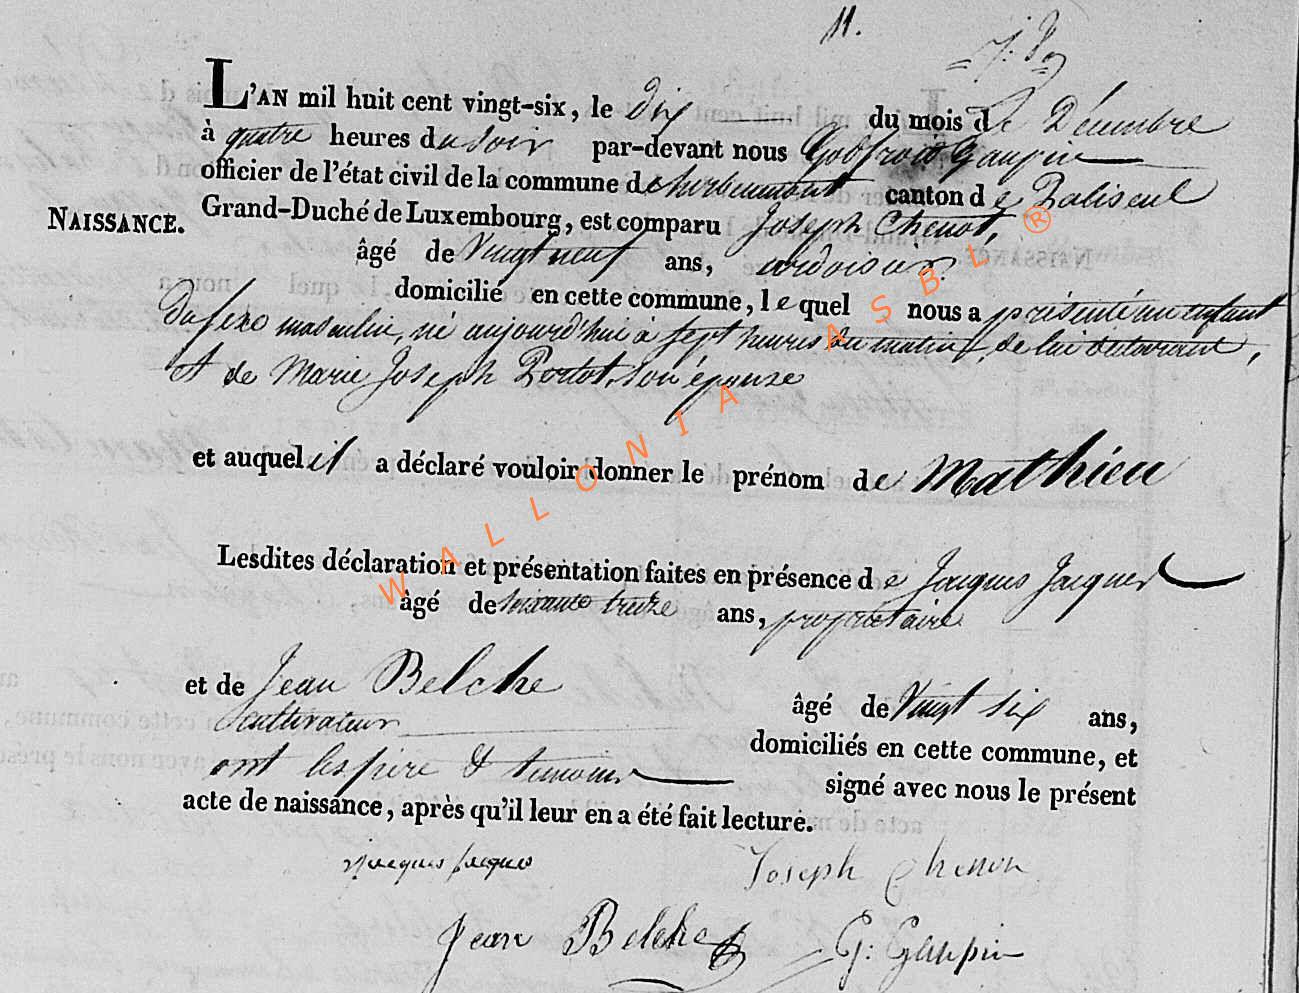 11.
L'AN mil huit cent vingt-six, le dix du mois de Décembre
à quatre heures du soir par-devant nous Godfroid Gaupin
officier de l'état civil de la commune d'herbeumont canton de Paliseul
NAISSANCE.
Grand-Duché de Luxembourg, est comparu Joseph Chenot,
âgé de Vingt neuf ans, ardoisier
domicilié en cette commune, lequel nous a présenté un enfant
du sexe masculin, né aujourd'hui à sept heures du matin, de lui déclarant,
et de Marie Joseph Pertot, son épouse
et auquel il a déclaré vouloir donner le prénom de Mathieu
Lesdites déclaration et présentation faites en présence de Jacques Jacques
âgé de soixante treize ans, propriétaire
et de Jean Belche âgé de Vingt six ans,
cultivateur domiciliés en cette commune, et
ont les père & témoins signé avec nous le présent
acte de naissance, après qu'il leur en a été fait lecture.
jacques jacques Joseph Chenon
Jean Belche G: Gaupin
WALLONIA ASBL ®